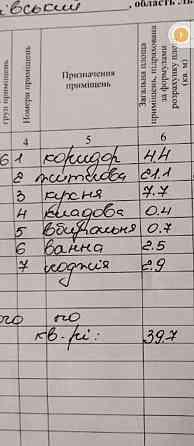 івський , область Ль
груп приміщень
Номери приміщень
Призначення приміщень
Загальна площа приміщень, підрахована за формулами розрахунку площ (кв. м)
4 5 6
6 1 коридор 4.4
2 житлова 21.1
3 кухня 7.7
4 кладова 0.4
5 вбиральня 0.7
6 ванна 2.5
7 лоджія 2.9
ого по
кв. рі: 39.7